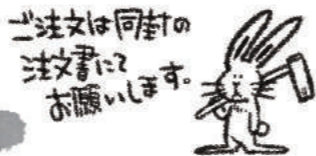 ご注文は同封の
注文書にて
お願いします。